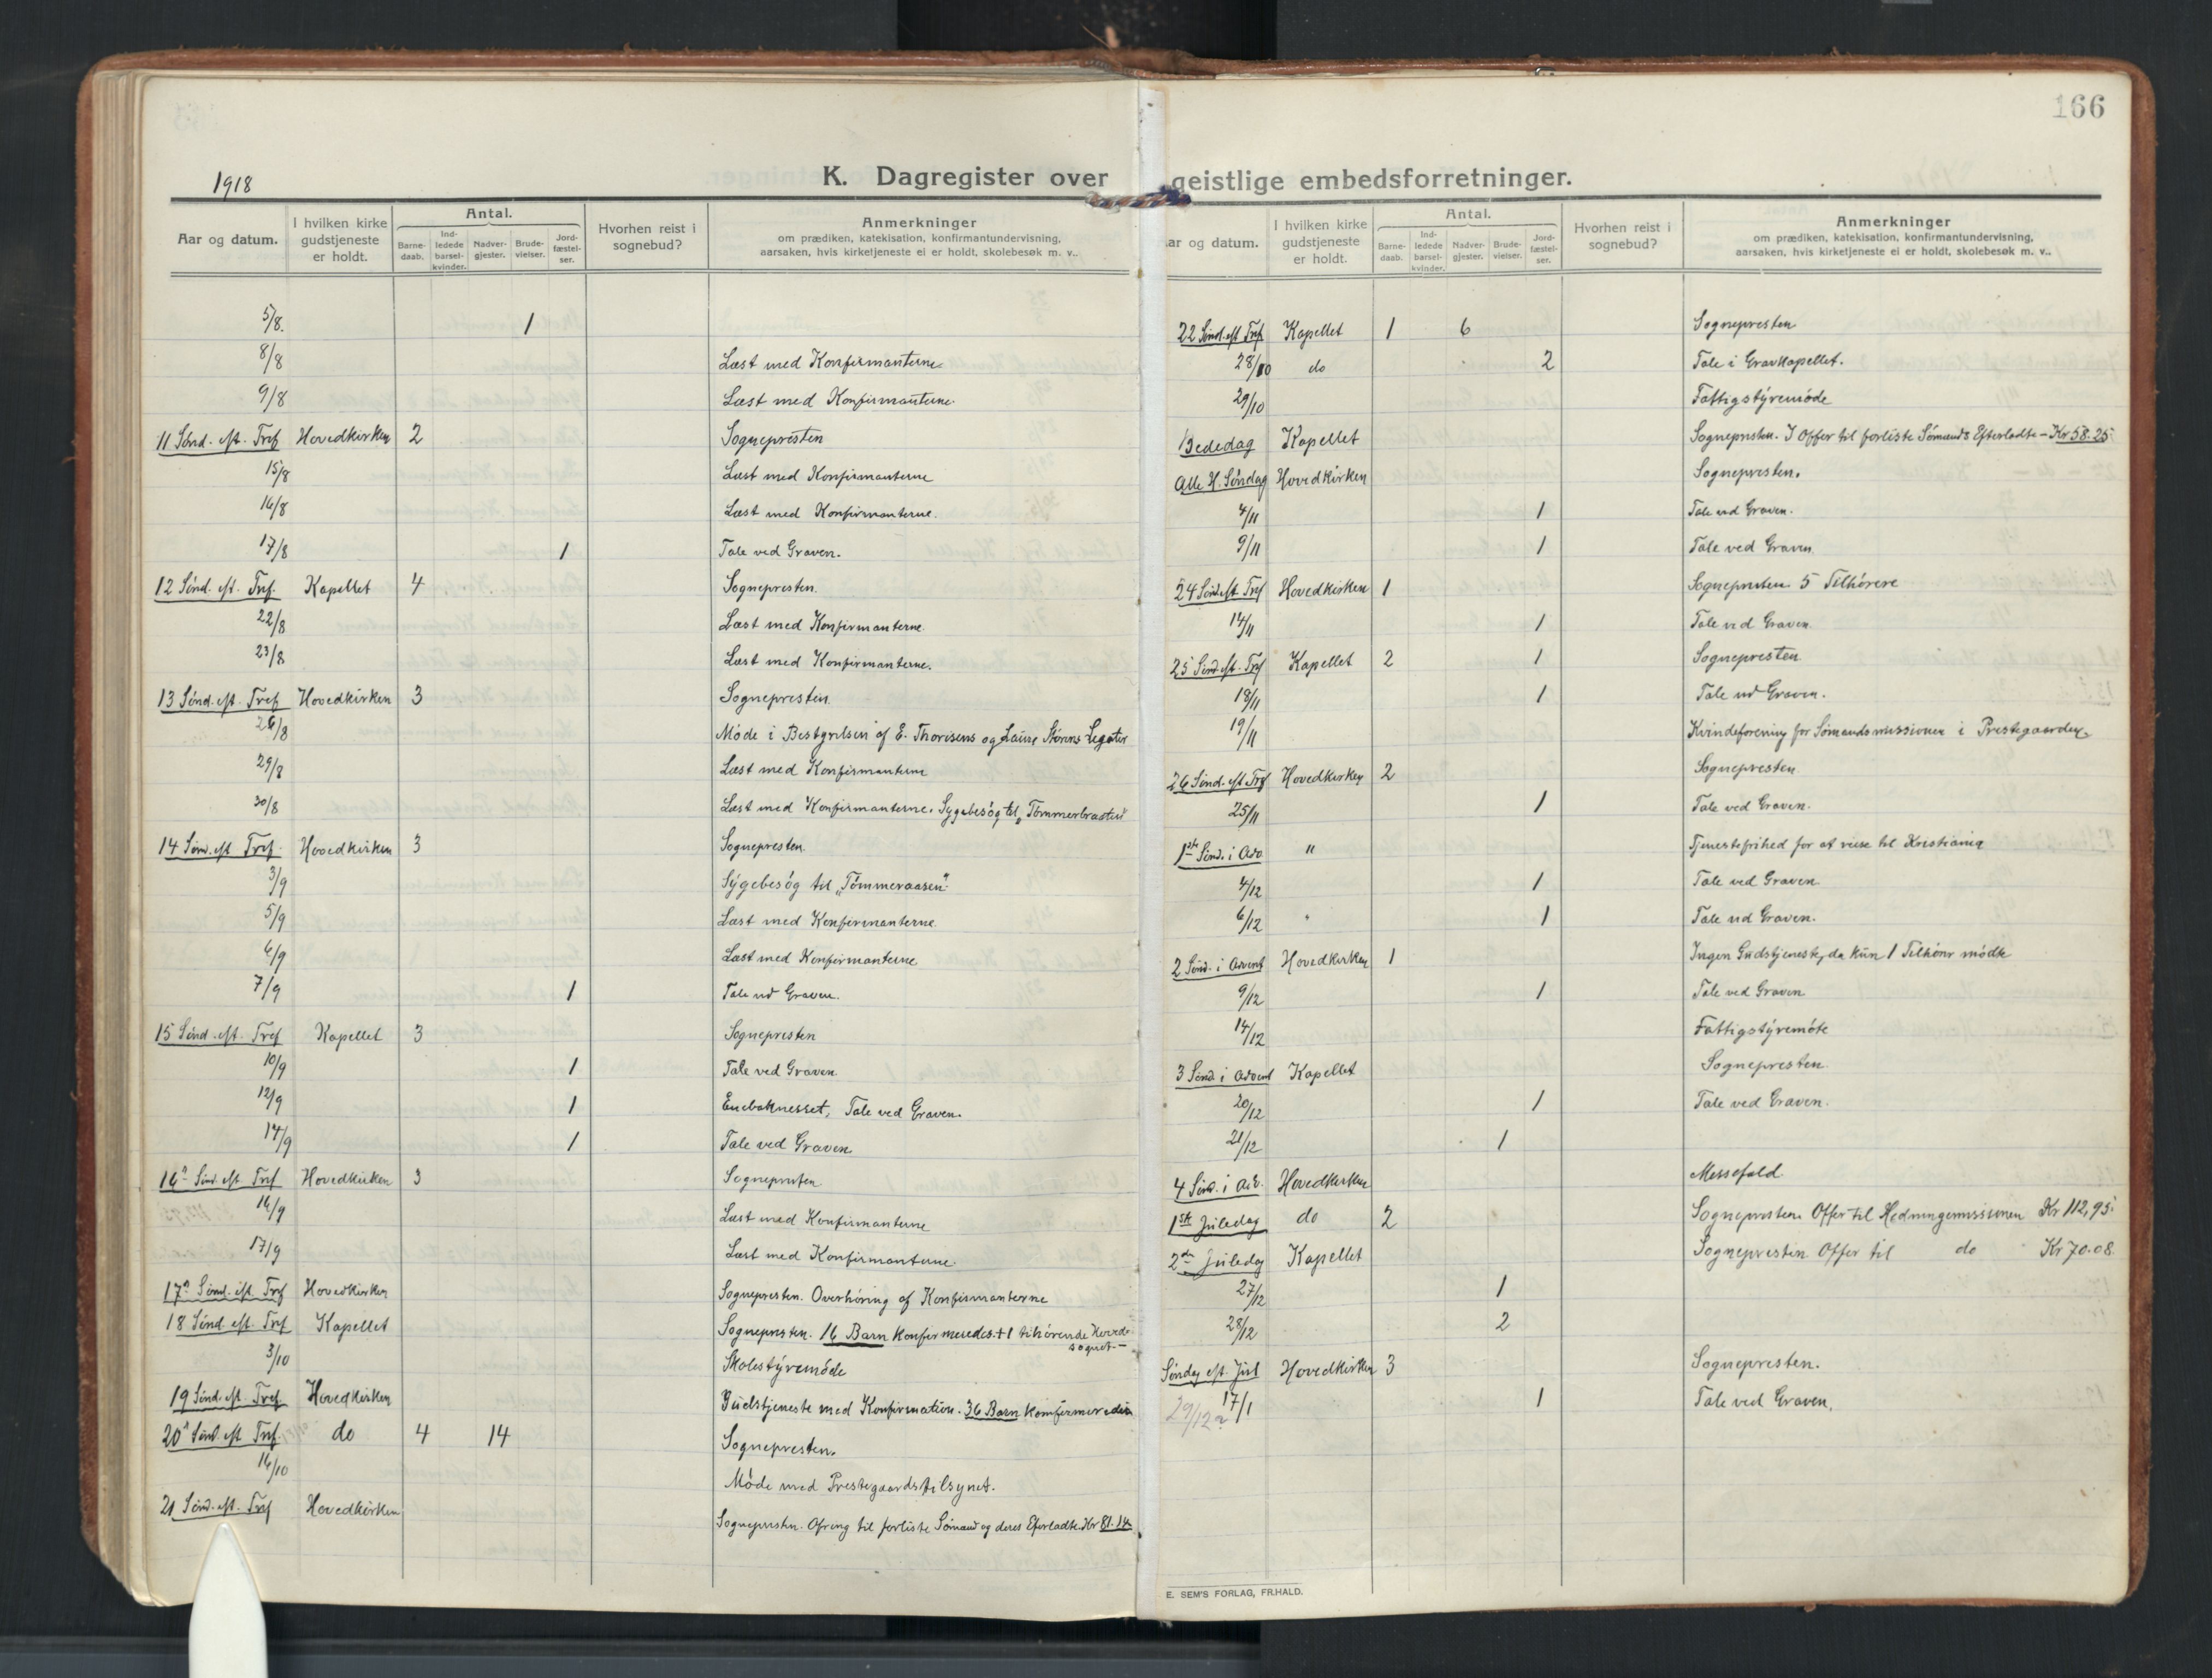 166
1918
K. Dagregister over geistlige embedsforretninger.
Aar og datum. I hvilken kirke gudstjeneste er holdt. Antal. Barne-daab. Ind-ledede barsel-kvinder. Nadver-gjester. Brude-vielser. Jord-fæstel-ser. Hvorhen reist i sognebud? Anmerkninger om prædiken, katekisation, konfirmantundervisning, aarsaken, hvis kirketjeneste ei er holdt, skolebesøk m. v..
5/8. 1
8/8 Læst med Konfirmanterne.
9/8 Læst med Konfirmanterne.
11 Sönd. eft. Tref Hovedkirken 2 Sognepresten
15/8 Læst med Konfirmanterne
16/8 Læst med Konfirmanterne.
17/8 1 Tale ved Graven.
12 Sönd. eft. Tref. Kapellet 4 Sognepresten.
22/8 Læst med Konfirmanterne.
23/8 Læst med Konfirmanterne.
13 Sönd. eft. Tref Hovedkirken 3 Sognepresten.
26/8 Möde i Bestyrelsen af E. Thorisens og Laure Störens Legater
29/8 Læst med Konfirmanterne
30/8 Læst med Konfirmanterne. Sygebesög til „Tömmerbraaten"
14 Sönd. eft Tref. Hovedkirken 3 Sognepresten.
3/9 Sygebesög til „Tömmeraasen".
5/9 Læst med Konfirmanterne.
6/9 Læst med Konfirmanterne
7/9 1 Tale ved Graven.
15 Sönd. eft. Tref Kapellet 3 Sognepresten
10/9 1 Tale ved Graven
12/9 1 Enebaknesset, Tale ved Graven.
14/9 1 Tale ved Graven
16 Sönd. eft Tref Hovedkirken 3 Sognepresten
16/9 Læst med Konfirmanterne
17/9 Læst med Konfirmanterne.
17 Sönd. eft. Tref Hovedkirken Sognepresten. Overhöring af Konfirmanterne
18 Sönd eft. Tref Kapellet Sognepresten. 16 Barn konfirmeredes + 1 tilhörende Hoved-
sognet.
3/10 Skolestyremöde
19 Sönd. eft. Tref. Hovedkirken Gudstjeneste med Konfirmation. 36 Barn konfirmeredes
20 Sönd. eft Tref. do 4 14 Sognepresten.
16/10 Möde med Prestegaardstilsynet.
21 Sönd. eft. Tref Hovedkirken Sognepresten. Ofring til forliste Sömænd og deres Efterladte. Kr 81.14
Aar og datum. I hvilken kirke gudstjeneste er holdt. Antal. Barne-daab. Ind-ledede barsel-kvinder. Nadver-gjester. Brude-vielser. Jord-fæstel-ser. Hvorhen reist i sognebud? Anmerkninger om prædiken, katekisation, konfirmantundervisning, aarsaken, hvis kirketjeneste ei er holdt, skolebesøk m. v..
22 Sönd. eft Tref Kapellet 1 6 Sognepresten
28/10 do 2 Tale i Gravkapellet.
29/10 Fattigstyremöde
Bededag Kapellet Sognepresten. I Offer til forliste Sömænds Efterladte - Kr 58.25
Alle H. Söndag Hovedkirken Sognepresten.
4/11 1 Tale ved Graven.
9/11 1 Tale ved Graven
24 Sönd. eft. Tref Hovedkirken 1 Sognepresten 5 Tilhörere
14/11 1 Tale ved Graven
25 Sönd. eft. Tref Kapellet 2 1 Sognepresten
18/11 1 Tale ved Graven.
19/11 Kvindeforening for Sömandsmissionen i Prestegaarden.
26 Sönd. eft Tref Hovedkirken 2 Sognepresten
25/11 1 Tale ved Graven.
1ste Sönd. i Adv. " Tjenestefrihed for at reise til Kristiania
4/12 1 Tale ved Graven
6/12 " 1 Tale ved Graven.
2 Sönd. i Advent Hovedkirken 1 Ingen Gudstjeneste, da kun 1 Tilhörer mödte
9/12 1 Tale ved Graven
14/12 Fattigstyremöte
3 Sönd i Advent Kapellet Sognepresten.
20/12 1 Tale ved Graven.
21/12 1
4 Sönd. i Adv. Hovedkirken Messefald
1ste Juledag do 2 Sognepresten. Offer til Hedningemissionen Kr 112,95
2den Juledag Kapellet Sognepresten. Offer til do Kr 70.08
27/12 1
28/12 2
Söndag eft. Jul Hovedkirken 3 Sognepresten.
29/12? 17/1 1 Tale ved Graven.
E. SEM'S FORLAG, FR.HALD.